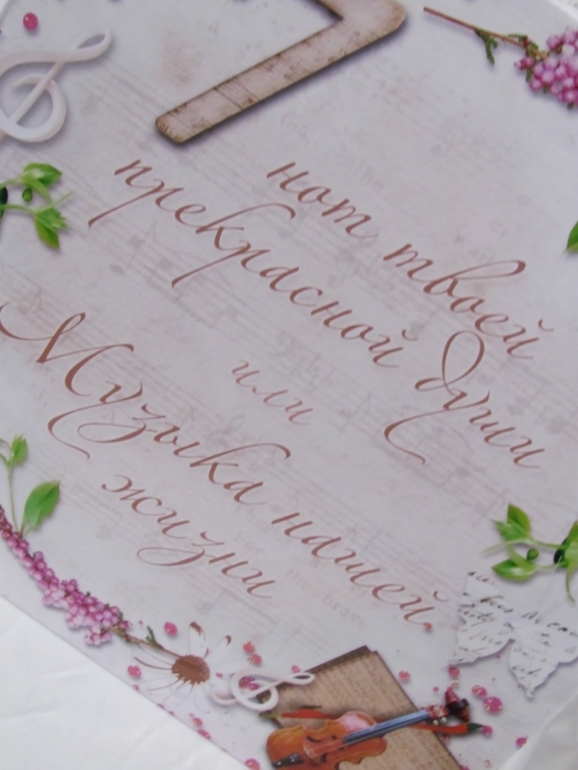 7
нот твоей
прекрасной души
или
Музыка нашей
жизни